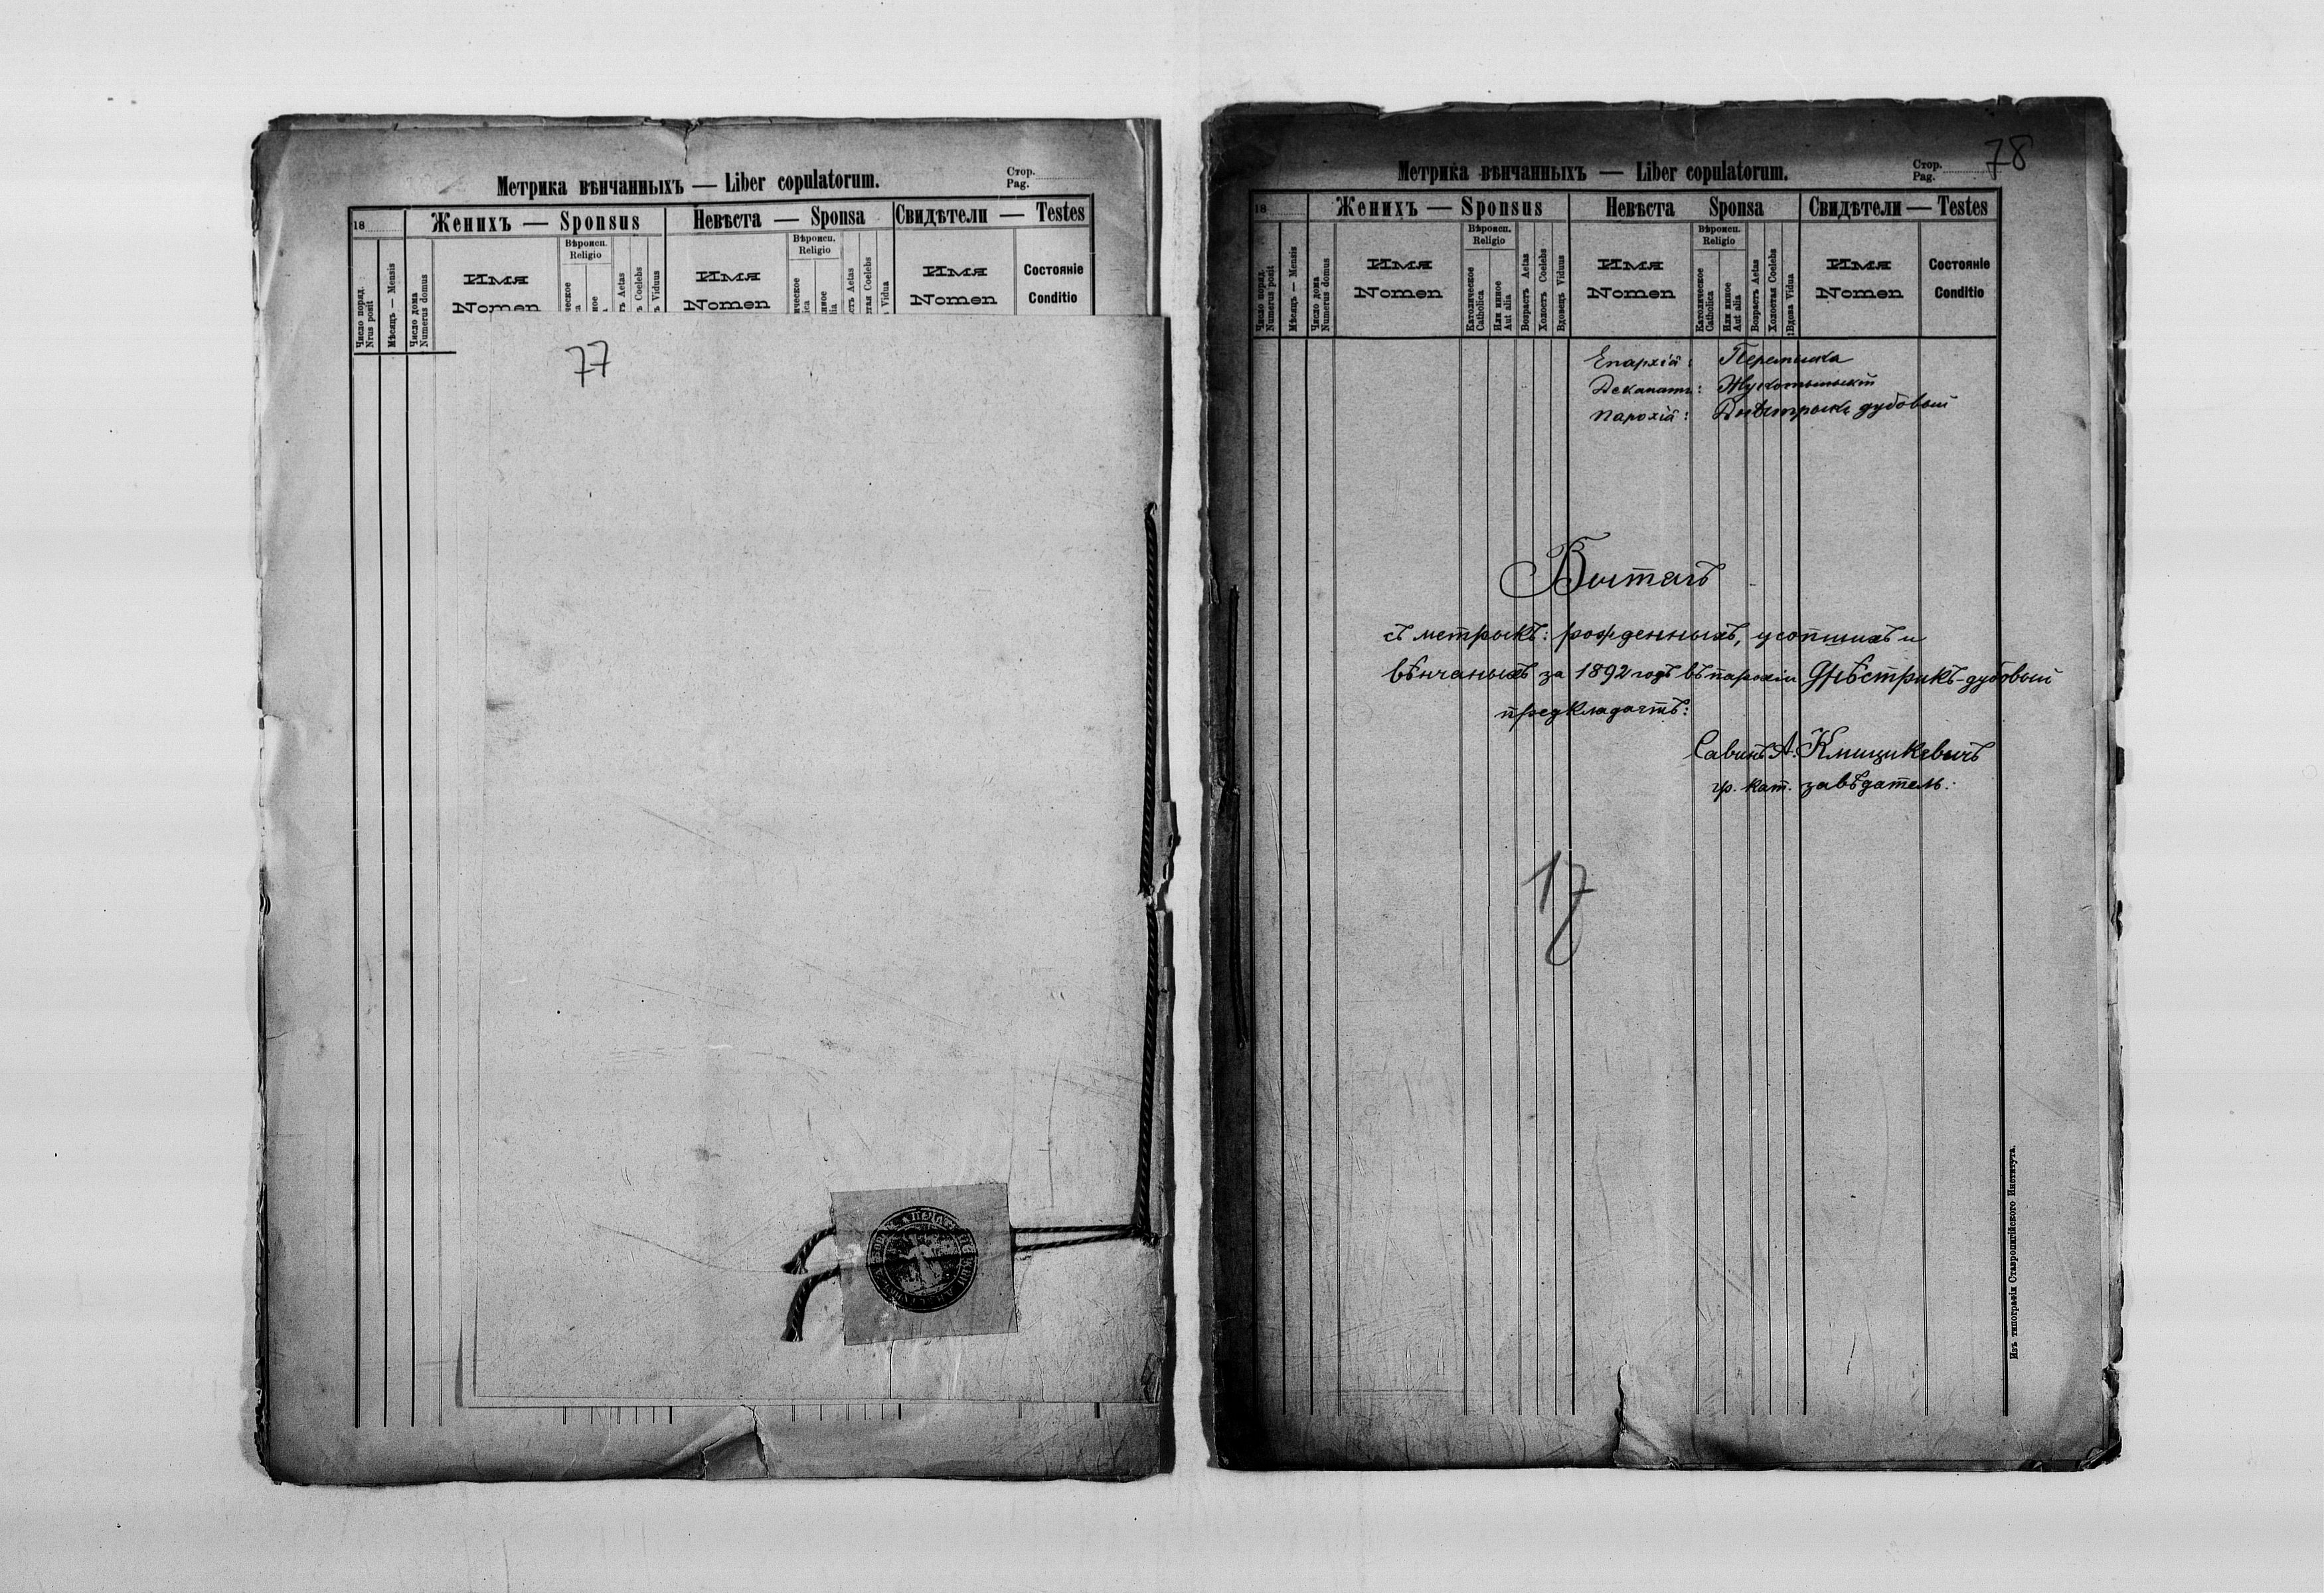 Метрика вѣнчанныхъ — Liber copulatorum.
Стор.
Pag.
18
Женихъ — Sponsus
Невѣста — Sponsa
Свидѣтели — Testes
Число поряд.
Nrus posit
Мѣсяцъ — Mensis
Число дома
Numerus domus
Имя
Nomen
Вѣроисп.
Religio
Имя
Nomen
Вѣроисп.
Religio
Имя
Nomen
Состояніе
Conditio
77
78
Метрика вѣнчанныхъ — Liber copulatorum.
Стор.
Pag.
18
Женихъ — Sponsus
Невѣста Sponsa
Свидѣтели — Testes
Число поряд.
Numerus posit
Мѣсяцъ — Mensis
Число дома
Numerus domus
Имя
Nomen
Вѣроисп.
Religio
Католическое
Catholica
Или иное
Aut alia
Возрастъ Aetas
Холостъ Coelebs
Вдовецъ Viduus
Имя
Nomen
Вѣроисп.
Religio
Католическое
Catholica
Или иное
Aut alia
Возрастъ Aetas
Холостая Coelebs
Вдова Vidua
Имя
Nomen
Состояніе
Conditio
Епархія: Перемышль
Деканатъ: Жукотыньскій
Парохія: Днѣстрыкъ дубовый
Вытягъ
съ метрыкъ: рожденныхъ, усопшихъ и
вѣнчаныхъ за 1892 годъ въ парохіи Днѣстрикъ-дубовый
предкладаетъ:
Савинъ А. Кмицикевичъ
гр. кат. завѣдатель.
17
Изъ типографіи Ставропигійского Института.